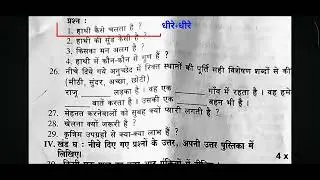 प्रश्न :
धीरे-धीरे
1. हाथी कैसे चलता है ?
2. हाथी की सूंड कैसी है ?
3. किसका मन अलग है ?
4. हाथी में कौन-कौन से गुण हैं ?
26. नीचे दिये गये अनुच्छेद में रिक्त स्थानों की पूर्ति सही विशेषण शब्दों से की
(मीठी, सुंदर, अच्छा, छोटी)
राजू लड़का है । वह एक गाँव में रहता है । वह हमे
बातें करता है । उसकी एक बहन भी है ।
27. मेहनत करनेवालों को सुबह क्यों प्यारी लगती है ?
28. खेलना क्यों जरूरी है ?
29. कृत्रिम उपग्रहों से क्या-क्या लाभ हैं ?
IV. खंड घ : नीचे दिए गए प्रश्नों के उत्तर, अपनी उत्तर पुस्तिका में
लिखिए। 4 x